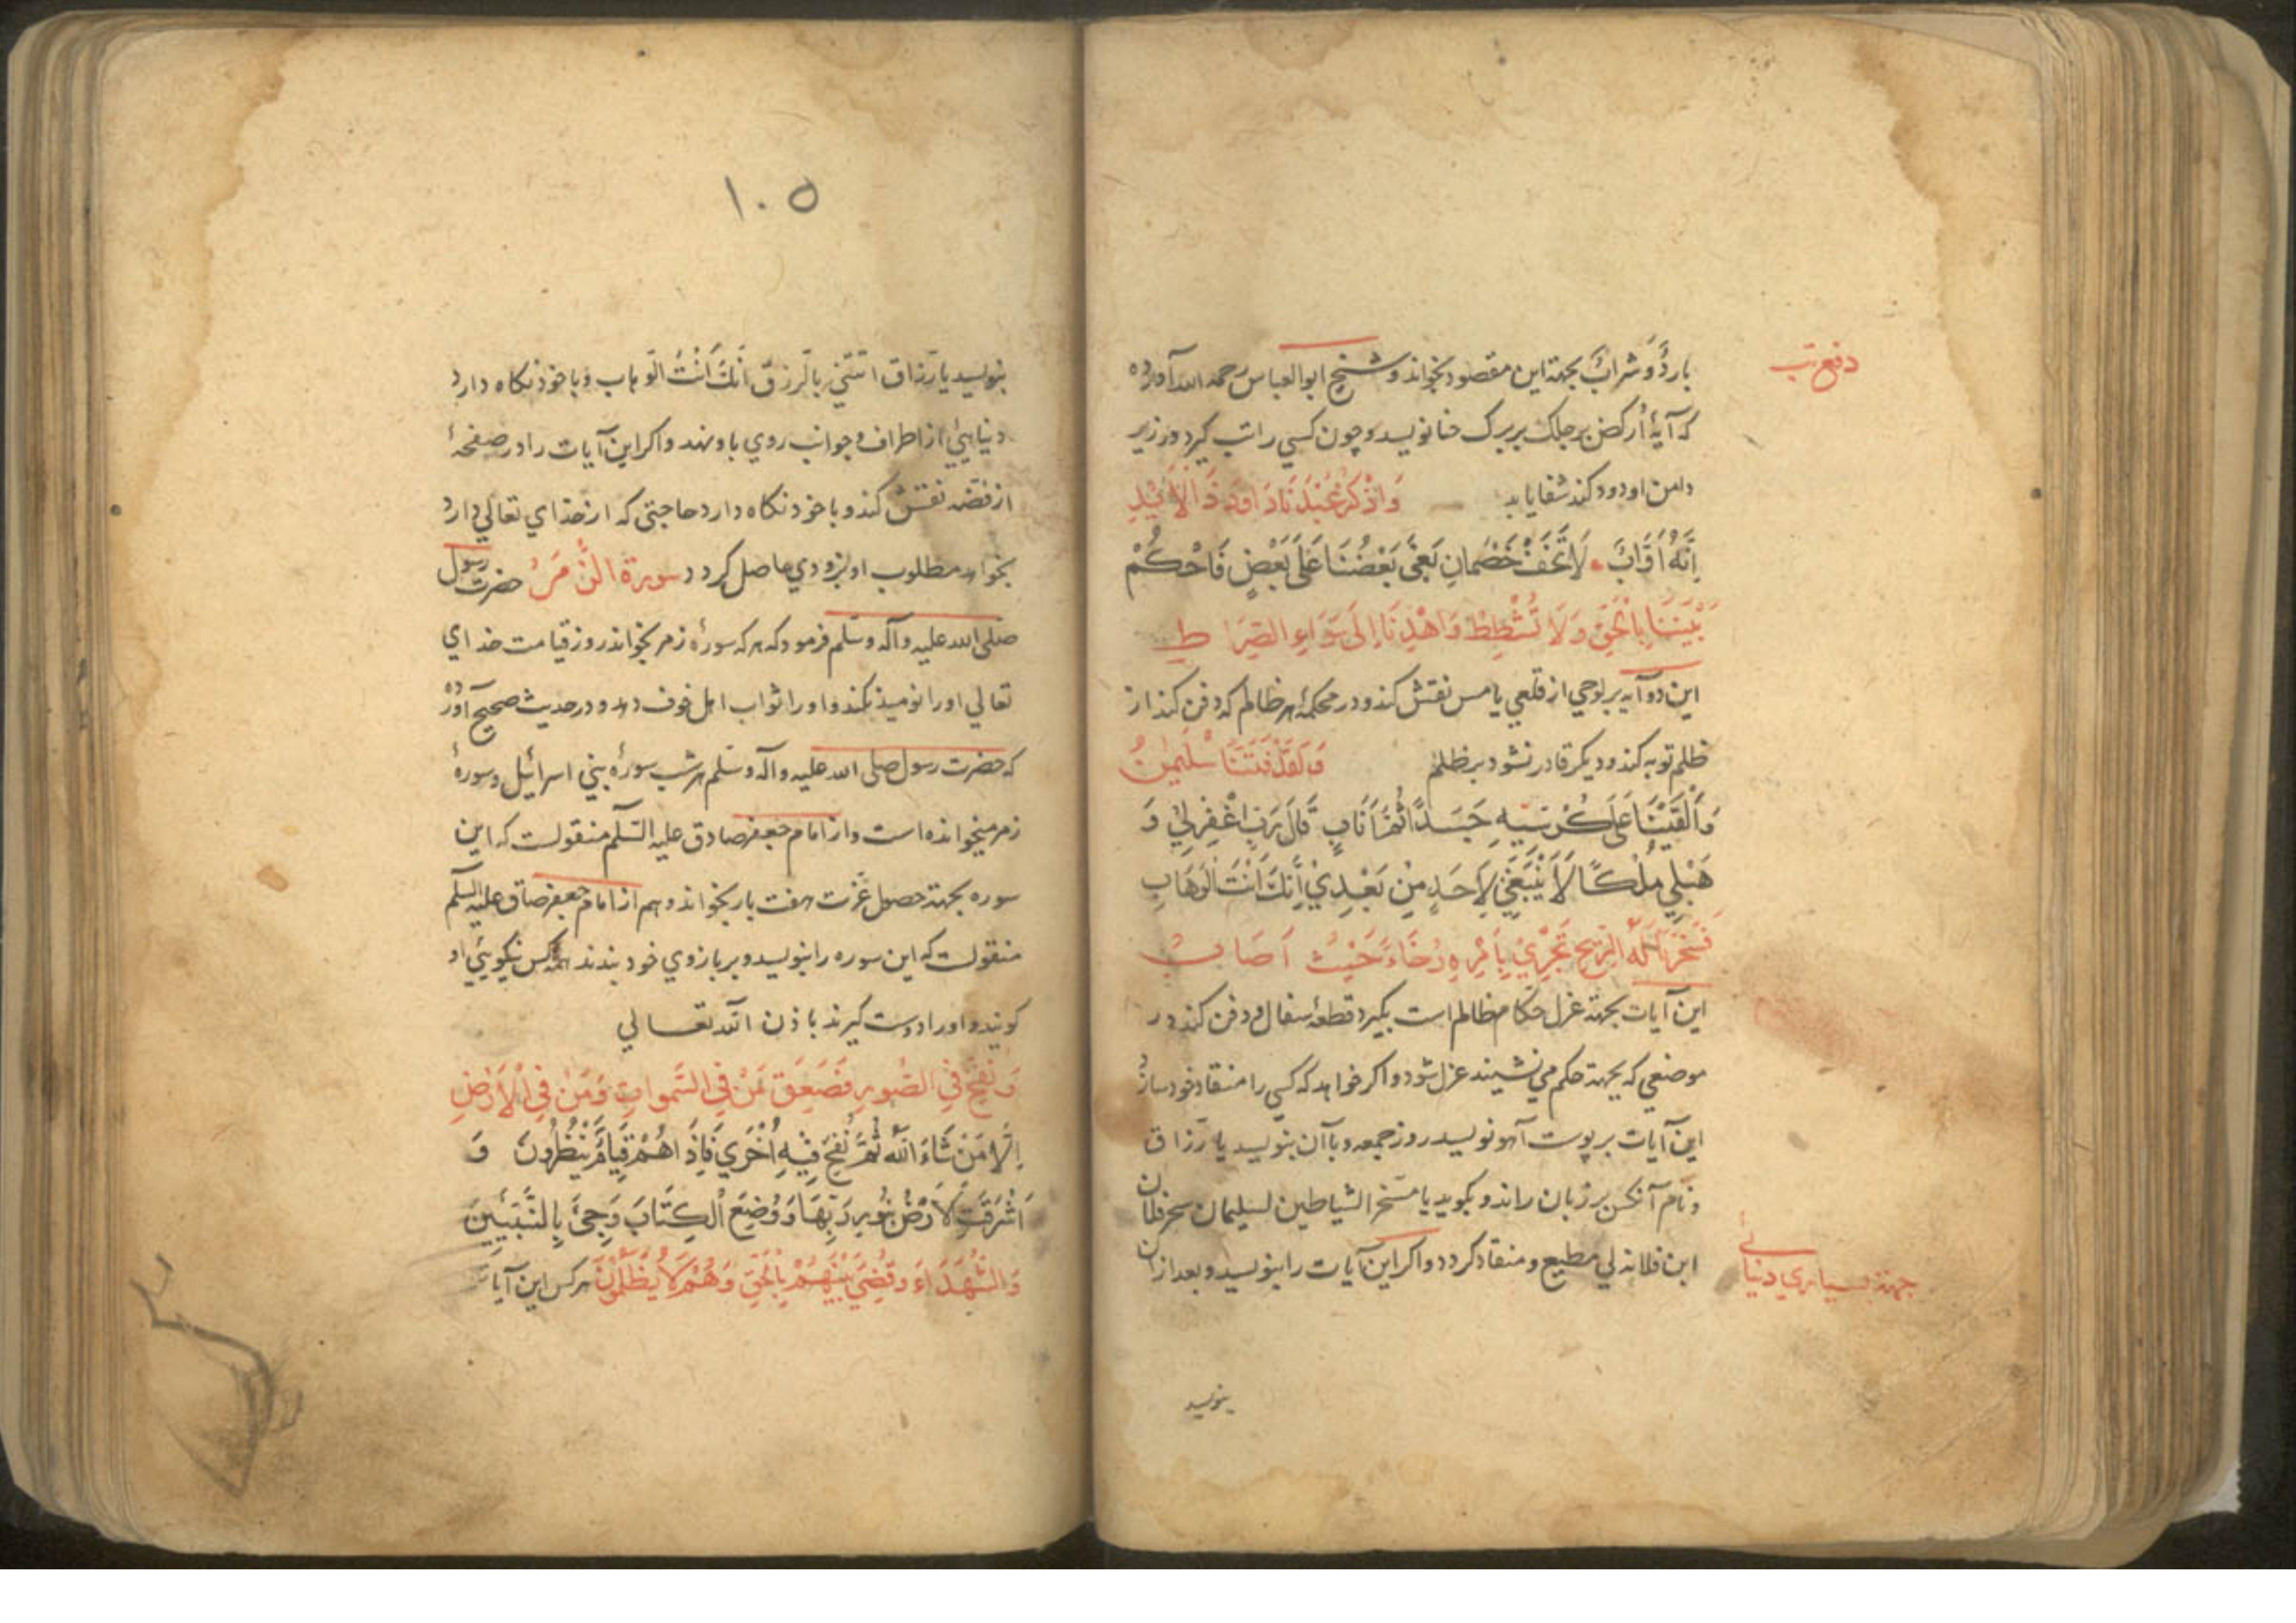 دفع تب
باردٌ وَ شرابٌ بجهة این مقصود بخواند و شیخ ابوالعباس رحمه الله آورده
که آیهٔ اُرکض برجلک بر برک حنا نویسد و چون کسی را تب کیرد در زیر
دامن او دود کند شفا یابد وَاذْکُرْ عَبْدَنَا دَاوُدَ ذَا الْاَیْدِ
اِنَّهُ اَوَّابٌ لَا تَخَفْ خَصْمَانِ بَغَی بَعْضُنَا عَلَی بَعْضٍ فَاحْکُمْ
بَیْنَنَا بِالْحَقِّ وَلَا تُشْطِطْ وَاهْدِنَا اِلَی سَوَاءِ الصِّرَاطِ
این دو آیه بر لوحی از قلعی یا مس نقش کند و در محکمهٔ هر ظالم که دفن کند از
ظلم توبه کند و دیکر قادر نشود بر ظلم وَلَقَدْ فَتَنَّا سُلَیْمٰنَ
وَاَلْقَیْنَا عَلَی کُرْسِیِّهِ جَسَدًا ثُمَّ اَنَابَ قَالَ رَبِّ اغْفِرْلِی وَ
هَبْلِی مُلْکًا لَا یَنْبَغِی لِاَحَدٍ مِنْ بَعْدِی اِنَّکَ اَنْتَ الْوَهَّابُ
فَسَخَّرْنَا لَهُ الرِّیحَ تَجْرِی بِاَمْرِهِ رُخَاءً حَیْثُ اَصَابَ
این آیات بجهة عزل حکام مظالم است بکیرد قطعهٔ سفال و دفن کند در
موضعی که بجهة حکم می نشیند عزل شود و اکر خواهد که کسی را منقاد خود سازد
این آیات بر پوست آهو نویسد روز جمعه و با آن بنویسد یا رزاق
و نام آنکس بر زبان راند و بکوید یا مسخر الشیاطین لسلیمان سخر فلان
ابن فلانه لی مطیع و منقاد کردد و اکر این آیات را بنویسد و بعد از آن
جهة بسیاری دنیائی
بنویسد
١٠٥
بنویسد یا رزاق اتننی بالرزق اِنَّکَ اَنْتَ الوهاب و با خود نکاه دارد
دنیایی از اطراف و جوانب روی باو نهد و اکر این آیات را در صفحهٔ
از فضه نقش کند و با خود نکاه دارد حاجتی که از خدای تعالی دارد
بخواهد مطلوب او بزودی حاصل کردد سورة الزُّمَرُ حضرت رسول
صلی الله علیه وآله وسلم فرمود که هر که سورهٔ زمر بخواند روز قیامت خدای
تعالی او را نومید نکند و او را ثواب اهل خوف دهد و در حدیث صحیح آورده
که حضرت رسول صلی الله علیه وآله وسلم هر شب سورهٔ بنی اسرائیل و سورهٔ
زمر میخوانده است و از امام جعفر صادق علیه السلم منقولست که این
سوره بجهة حصول عزت هفت بار بخواند و هم از امام جعفر صادق علیه السلم
منقولست که این سوره را بنویسد و بر بازوی خود بندد همه کس نیکویی او
کویند و او را دوست کیرند باذن الله تعالی
وَ نُفِخَ فِی الصُّورِ فَصَعِقَ مَنْ فِی السَّمٰوَاتِ وَمَنْ فِی الْاَرْضِ
اِلَّا مَنْ شَاءَ اللّٰهُ ثُمَّ نُفِخَ فِیْهِ اُخْرَی فَاِذَا هُمْ قِیَامٌ یَنْظُرُونَ وَ
اَشْرَقَتِ الْاَرْضُ بِنُورِ رَبِّهَا وَ وُضِعَ الْکِتَابُ وَجِیءَ بِالنَّبِیِّینَ
وَالشُّهَدَاءِ وَقُضِیَ بَیْنَهُمْ بِالْحَقِّ وَهُمْ لَا یُظْلَمُونَ هر کس این آیات